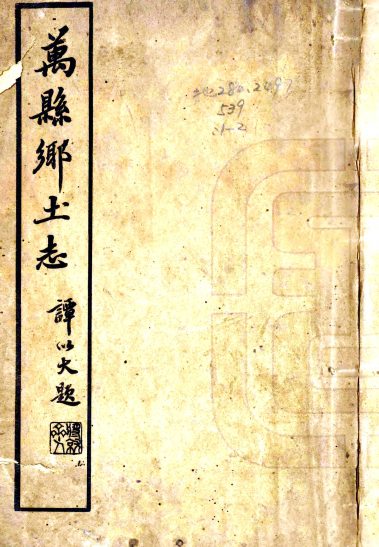 萬縣鄉土志
譚以大題
地280.2497
539
:1-2